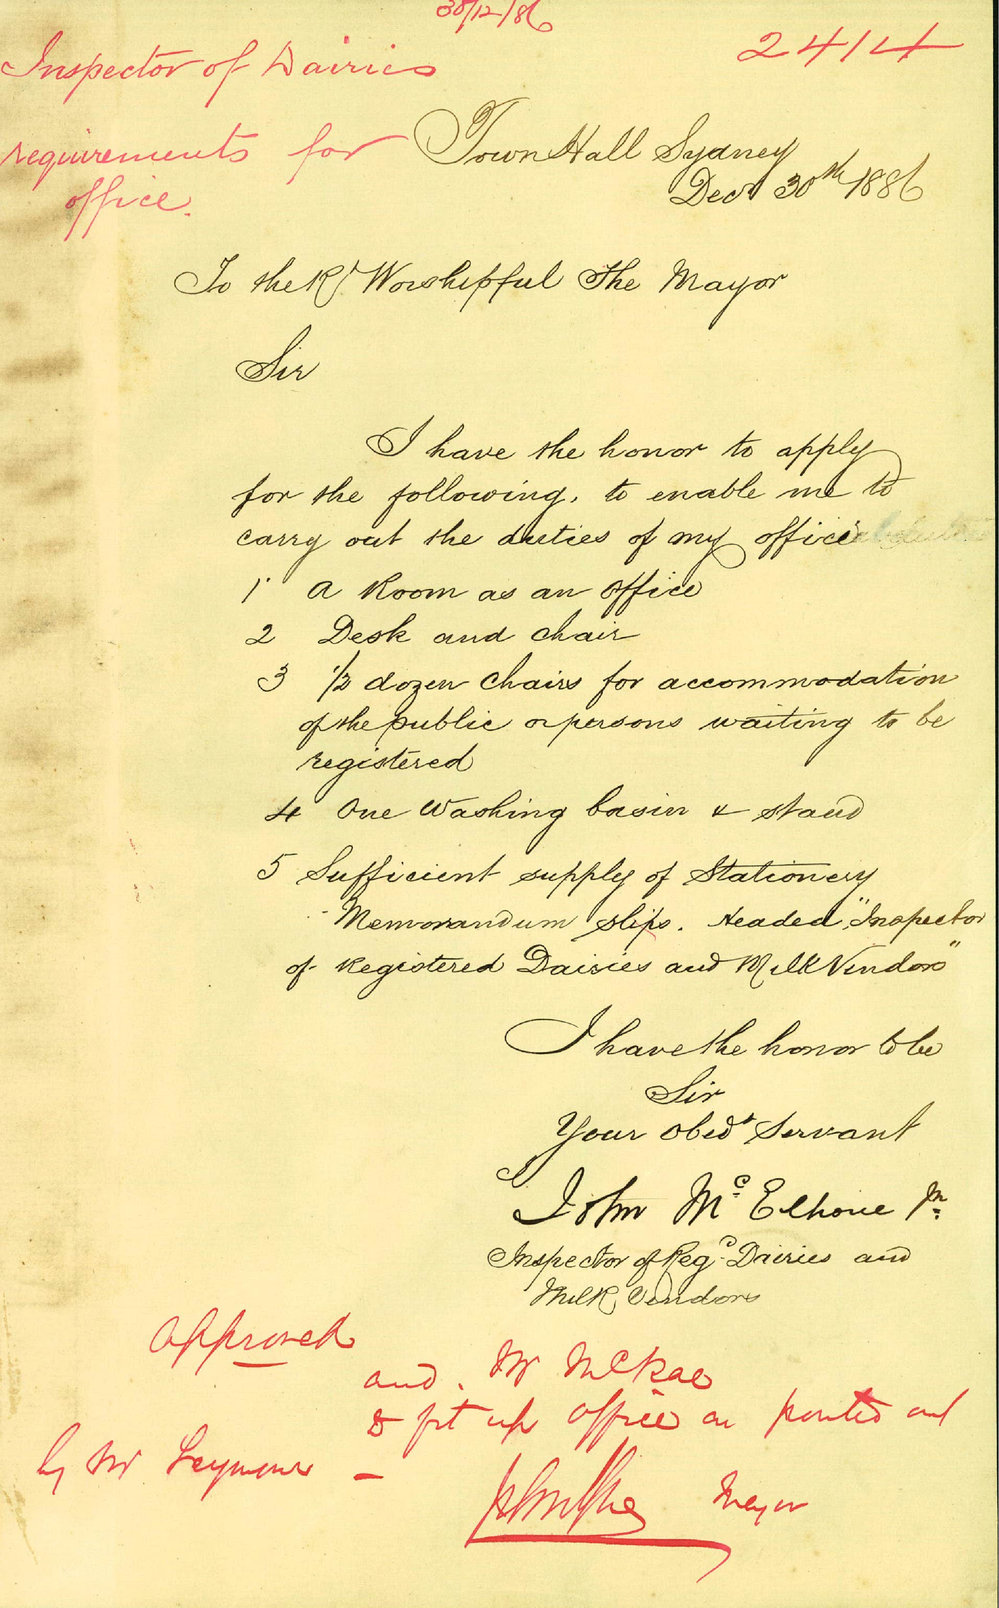 30/12/86
2414
Inspector of Dairies
requirements for
office.
Town Hall Sydney
Decr 30th 1886
To the Rt Worshipful The Mayor
Sir
I have the honor to apply
for the following, to enable me to
carry out the duties of my office
1 A Room as an office
2 Desk and chair
3 1/2 dozen chairs for accommodation
of the public or persons waiting to be
registered
4 One Washing basin & stand
5 Sufficient supply of Stationery
Memorandum slips. Headed "Inspector
of Registered Dairies and Milk Vendors"
I have the honor to be
Sir
Your obedt Servant
John McElhone Jr
Inspector of Regd Dairies and
Milk Vendors
Approved
and. Mr McRae
to fit up office as pointed out
by Mr Seymour –
Mayor